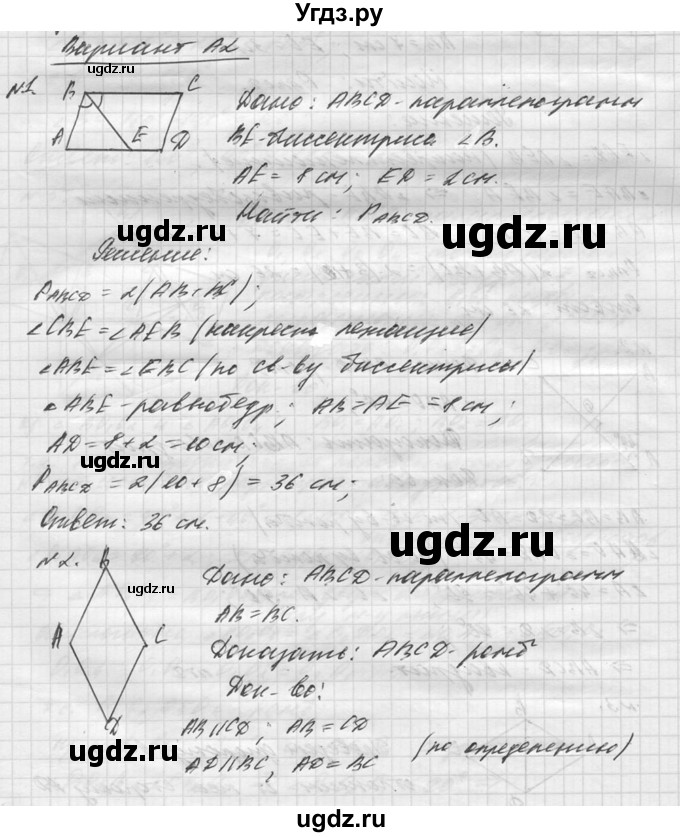 Угдз.ру
Вариант А2
№1.
B C
A E D
Дано: ABCD-параллелограмм
BE-биссектриса ∠B.
AE = 8 см; ED = 2 см.
Найти: P ABCD.
Решение:
P ABCD = 2(AB+BC);
∠CBE = ∠AEB (накрест лежащие)
∠ABE = ∠EBC (по св-ву биссектрисы)
△ABE-равнобедр.; AB = AE = 8 см;
AD = 8 + 2 = 10 см;
P ABCD = 2(10 + 8) = 36 см;
Ответ: 36 см.
№2.
B
A C
D
Дано: ABCD-параллелограмм
AB = BC.
Доказать: ABCD-ромб
Док-во:
AB||CD; AB = CD
AD||BC, AD = BC (по определению)
ugdz.ru
ugdz.ru
ugdz.ru
ugdz.ru
ugdz.ru
ugdz.ru
ugdz.ru
ugdz.ru
ugdz.ru
ugdz.ru
ugdz.ru
ugdz.ru